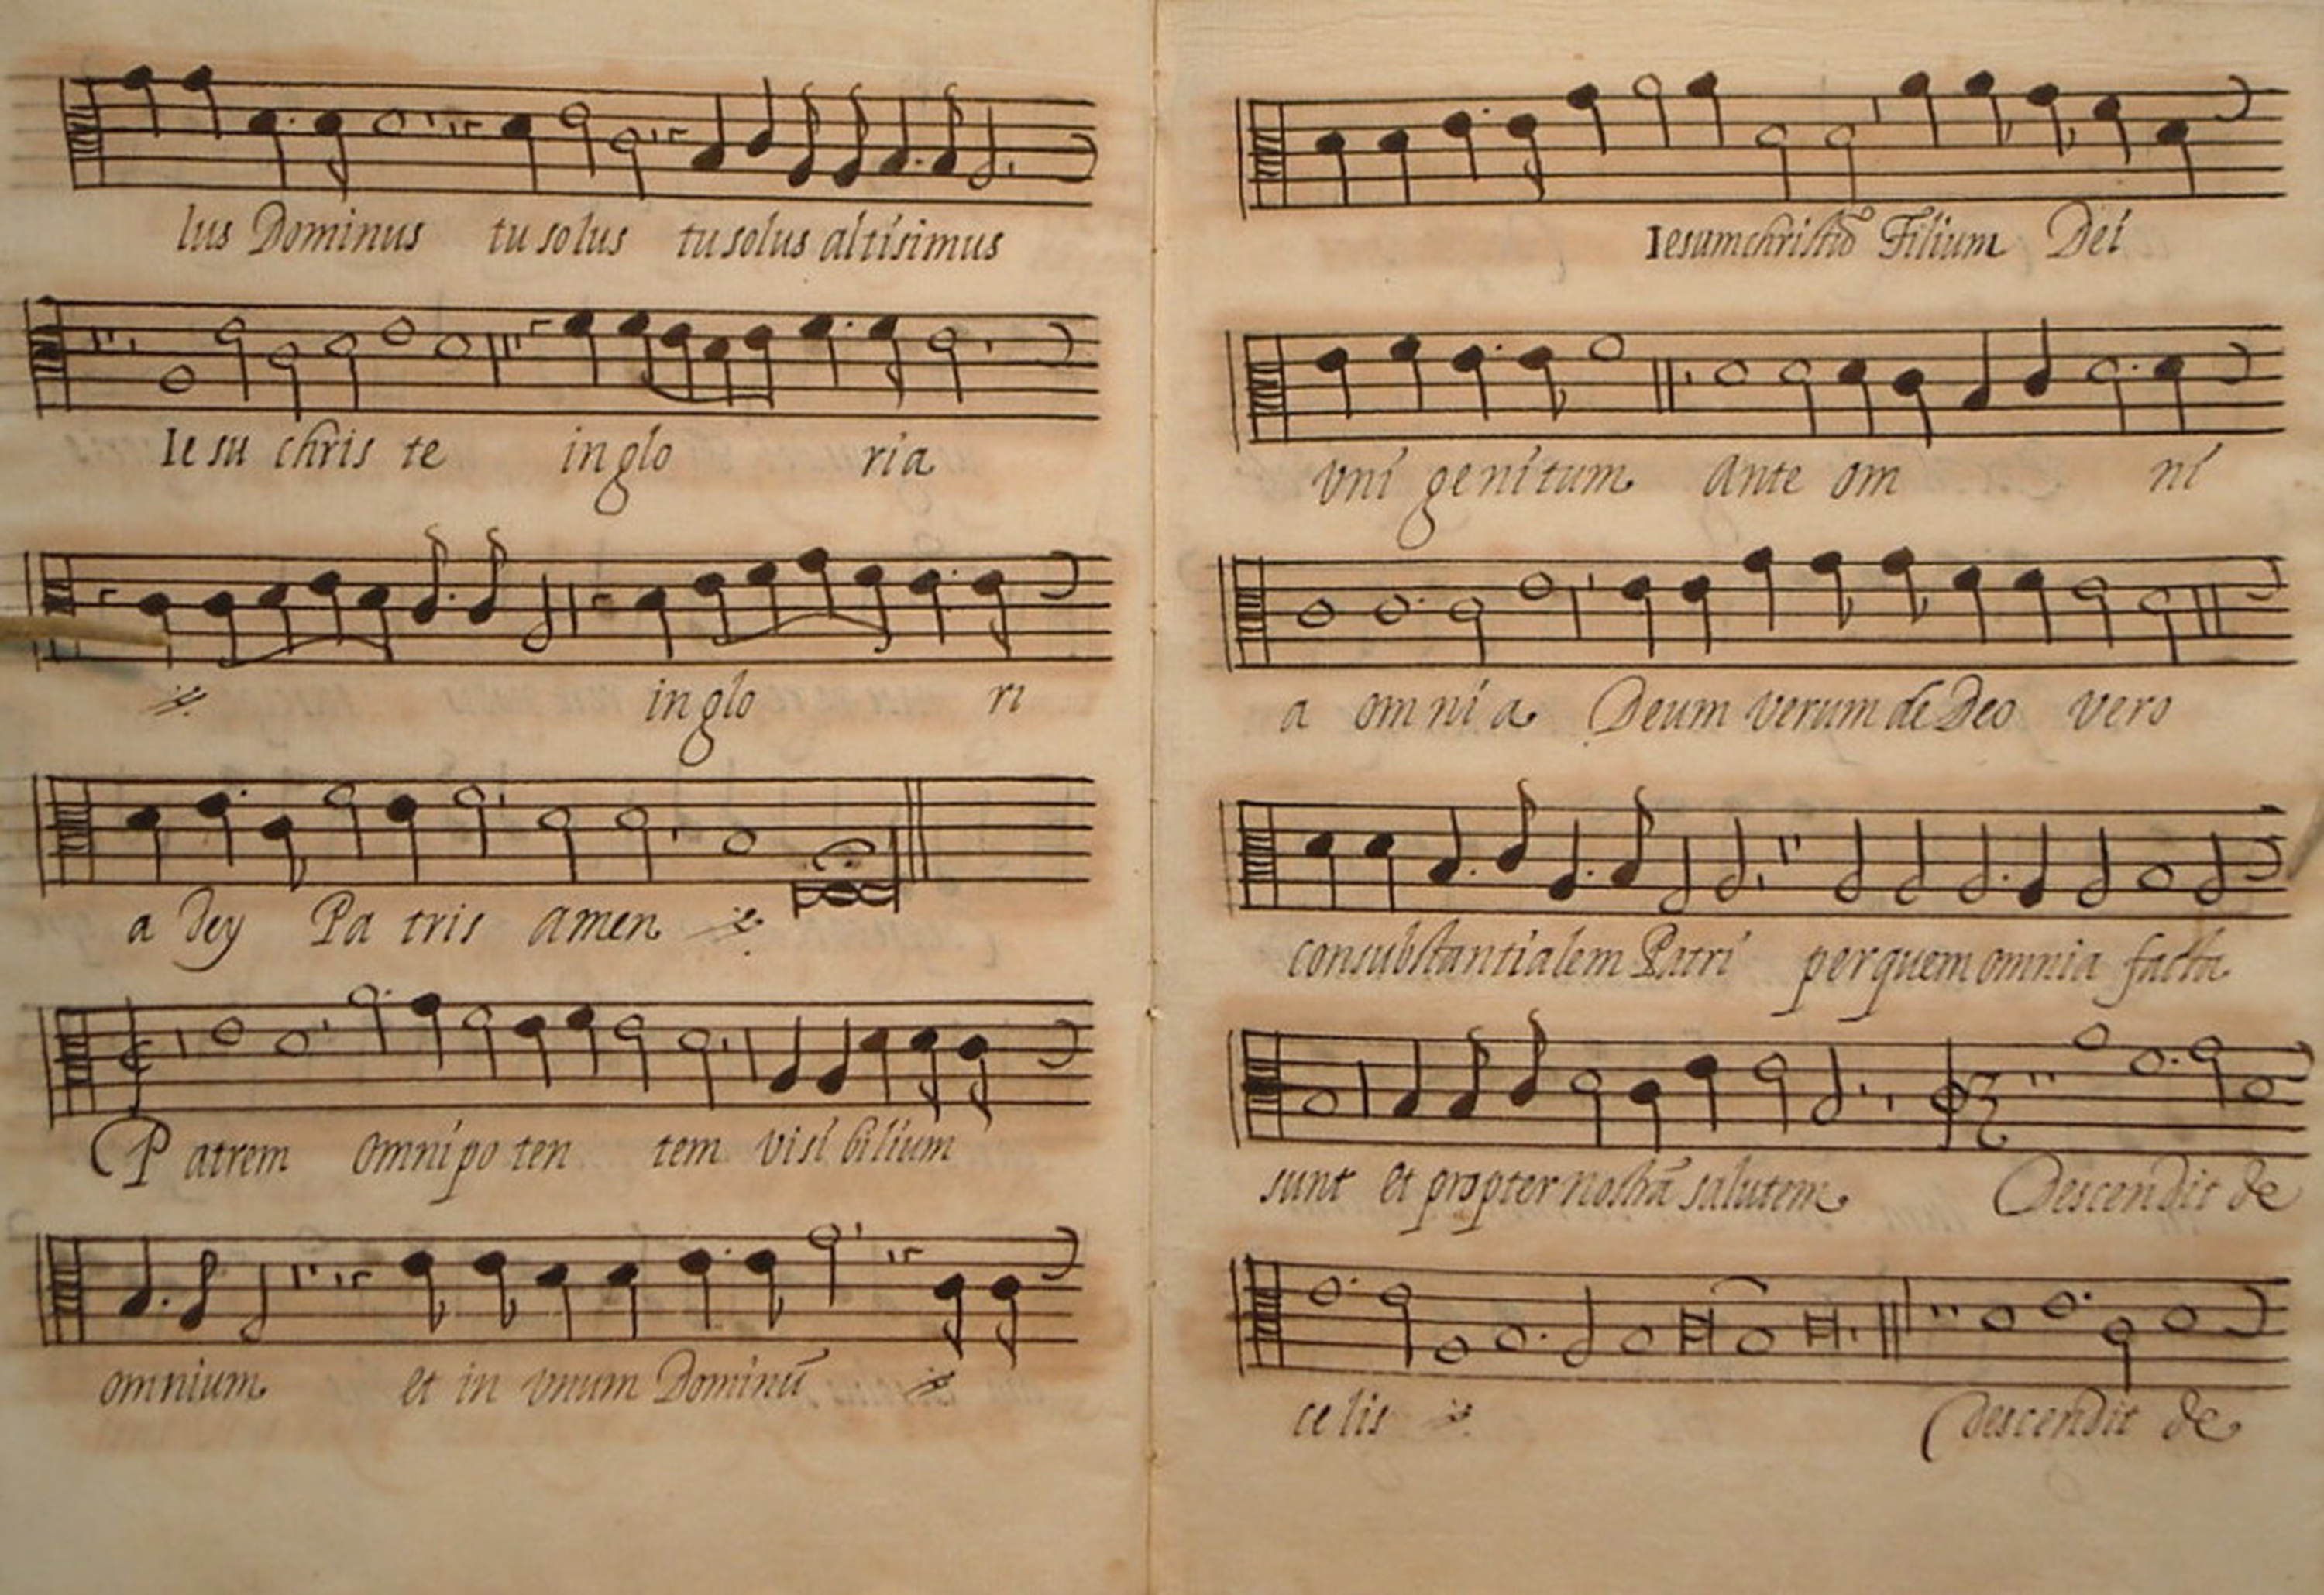 lus Dominus tu solus tu solus altisimus
Ie su chris te in glo ria
in glo ri
a dey Pa tris amen
Patrem omni po ten tem visi bilium
omnium et in vnum Dominū
Iesum christū Filium Dei
vni genitum Ante om ni
a om ni a Deum verum de Deo vero
consubstantialem Patri per quem omnia facta
sunt et propter nostrā salutem Descendit de
ce lis descendit de